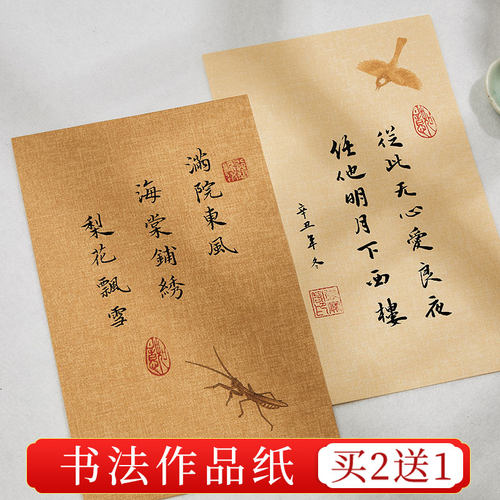 滿院東風
海棠鋪绣
梨花飄雪
從此无心愛良夜
任他明月下西樓
辛丑年冬
书法作品纸
买2送1